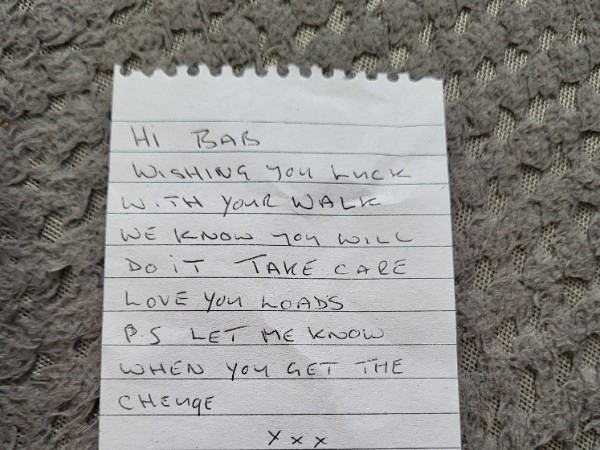 HI BAB
WISHING YOU LUCK
WITH YOUR WALK
WE KNOW YOU WILL
DO IT TAKE CARE
LOVE YOU LOADS
P.S LET ME KNOW
WHEN YOU GET THE
CHEUQE
x x x